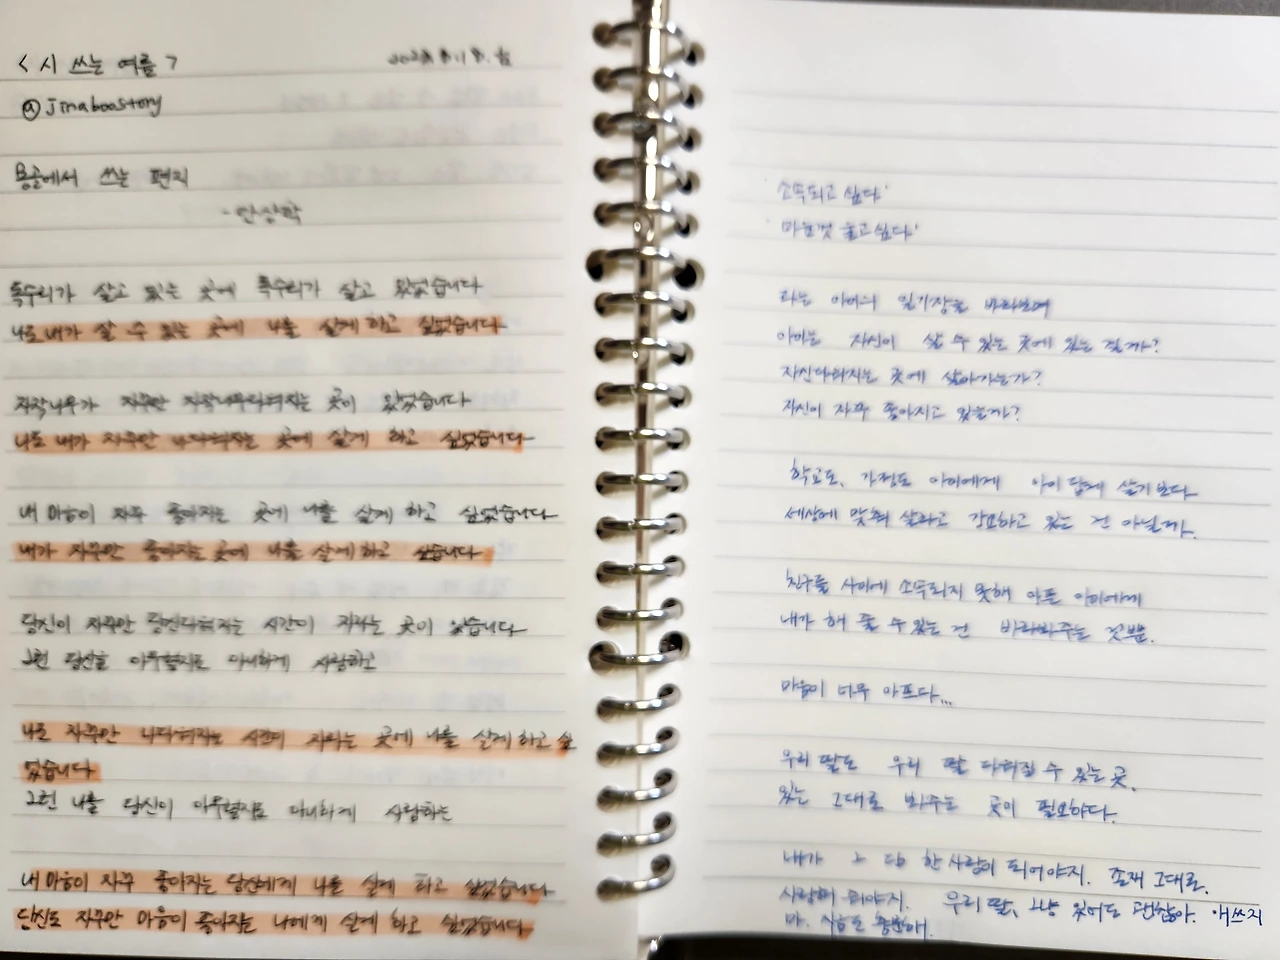 < 시 쓰는 여름 >
@jinaboostory
몽골에서 쓰는 편지
- 안상학
독수리가 살고 있는 곳에 독수리가 살고 있었습니다
나도 내가 살 수 있는 곳에 나를 살게 하고 싶었습니다
자작나무가 자꾸만 자작나무다워지는 곳이 있었습니다
나도 내가 자꾸만 나다워지는 곳에 살게 하고 싶었습니다
내 마음이 자꾸 좋아지는 곳에 나를 살게 하고 싶었습니다
내가 자꾸만 좋아지는 곳에 나를 살게 하고 싶었습니다
당신이 자꾸만 당신다워지는 시간이 자라는 곳이 있습니다
그런 당신을 아무렇지도 아니하게 사랑하고
나도 자꾸만 나다워지는 시간이 자라는 곳에 나를 살게 하고 싶
었습니다
그런 나를 당신이 아무렇지도 아니하게 사랑하는
내 마음이 자꾸 좋아지는 당신에게 나를 살게 하고 싶었습니다
당신도 자꾸만 마음이 좋아지는 나에게 살게 하고 싶었습니다
'소속되고 싶다'
'마음껏 놀고 싶다'
라는 아이의 일기장을 바라보며
아이는 자신이 살 수 있는 곳에 있는 걸까?
자신다워지는 곳에 살아가는가?
자신이 자꾸 좋아지고 있을까?
학교도, 가정도 아이에게 아이답게 살기보다
세상에 맞춰 살라고 강요하고 있는 건 아닐까.
친구들 사이에 소속되지 못해 아픈 아이에게
내가 해 줄 수 있는 건 바라봐주는 것뿐.
마음이 너무 아프다...
우리 딸도 우리 딸 다워질 수 있는 곳.
있는 그대로 봐주는 곳이 필요하다.
내가 그 한 사람이 되어야지. 존재 그대로.
사랑해 줘야지. 우리 딸, 그냥 있어도 괜찮아. 애쓰지
마. 지금도 충분해.